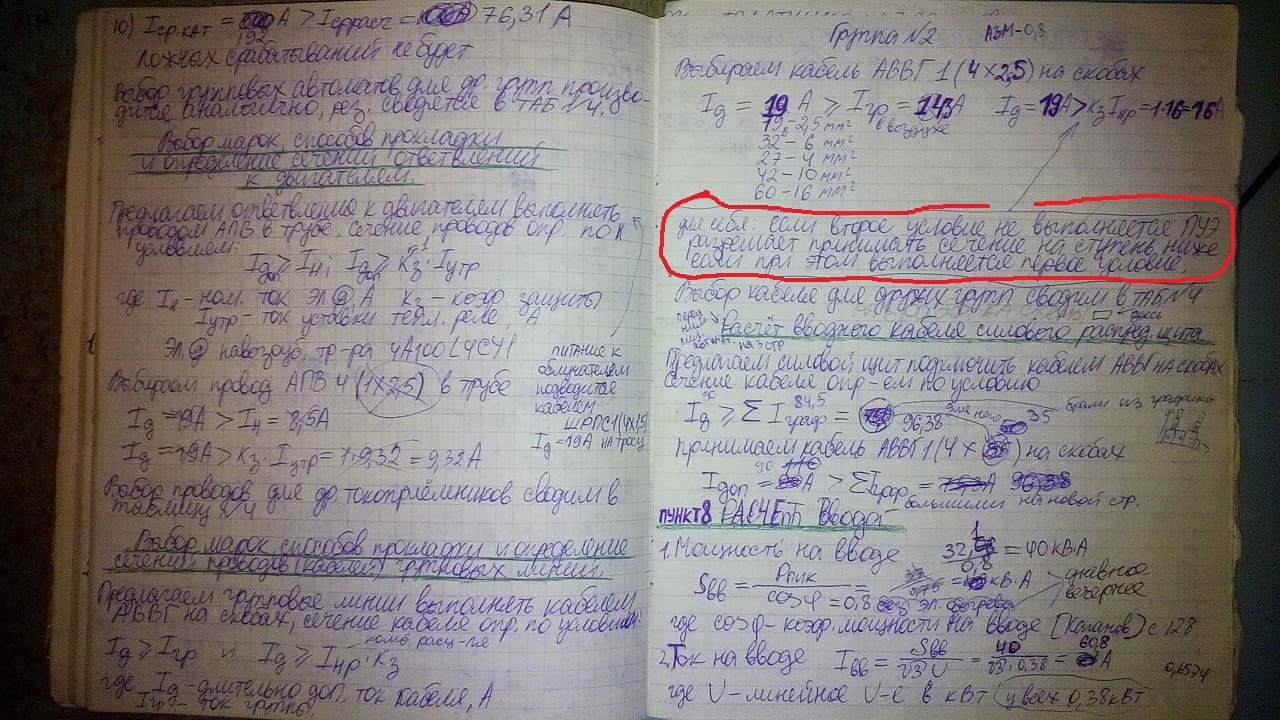 10) Iср.кат = 192 А > Iср расч = 76,31 А
ложных срабатываний не будет
Выбор групповых автоматов для др. групп произво-
дится аналогично, рез. сводятся в ТАБ №4,5
Выбор марок, способов прокладки
и определение сечений ответвлений
к двигателям.
Предлагаем ответвление к двигателям выполнять
проводом АПВ в трубе, сечение проводов опр. по к
условиям:
Iдоп ≥ Iн; Iдоп ≥ Kз · Iутр
где Iн - ном. ток эл.д, А Kз - коэф защиты
Iутр - ток уставки тепл. реле, А
Эл.д навозоуб. тр-ра 4А100L4СУ1
Выбираем провод АПВ 4 (1×2,5) в трубе
Iд = 19А > Iн = 8,5А
Iд = 19А > Kз · Iутр = 1·9,32 = 9,32 А
питание к
облучателям
подводится
кабелем
ШРПС1(4×1,5)
Iд = 19А на трасу
Выбор проводов для др. токоприёмников сводим в
таблицу №4
Выбор марок, способов прокладки и определение
сечений проводов (кабелей) групповых линий.
Предлагаем групповые линии выполнять кабелем
АВВГ на скобах, сечение кабеля опр. по условиям:
Iд ≥ Iгр и Iд ≥ Iнр · Kз
комб. расц-ля
где Iд - длительно доп. ток кабеля, А
Iгр - ток группы.
Группа №2 АЗМ-0,8
Выбираем кабель АВВГ 1 (4×2,5) на скобах
Iд = 19 А ≥ Iгр = 14,3А Iд = 19А > Kз Iнр = 1·16 = 16А
19 - 2,5 мм² в воздухе
32 - 6 мм²
27 - 4 мм²
42 - 10 мм²
60 - 16 мм²
для себя: если второе условие не выполняется ПУЭ
разрешает принимать сечение на ступень ниже
если при этом выполняется первое условие.
Выбор кабеля для других групп сводим в ТАБ №4
здесь
Расчёт вводного кабеля силового распред. щита
на 3 стр
Предлагаем силовой щит подключить кабелем АВВГ на скобах
сечение кабеля опр-ем по условию
Iд ≥ ΣIграф = 84,5 96,38 для него 35 брали из графика
90
принимаем кабель АВВГ 1 (4 × ) на скобах
Iдоп = 90 А > ΣIграф = 96,38
большими на новой стр.
ПУНКТ 8 РАСЧЕТ Ввода
1. Мощность на вводе 32,1/0,8 = 40 кВ·А
Sвв = Pпик/cosφ = 0,8 = кВ·А дневное
вечернее
без эл. обогрева
где cosφ - коэф. мощности на вводе [Каганов] с 128
2. Ток на вводе Iвв = Sвв/√3 U = 40/√3·0,38 = 60,8 А
где U - линейное U-е в кВт (у всех 0,38кВт)